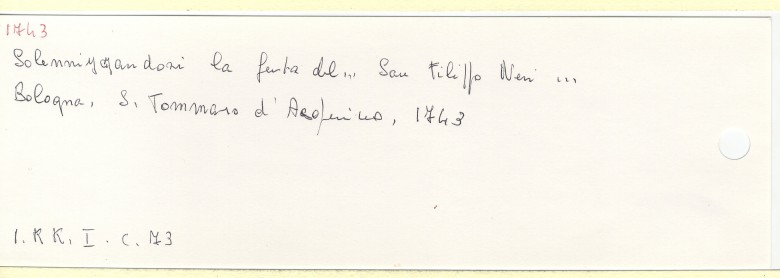 1743
Solennizzandosi la festa del... San Filippo Neri ...
Bologna, S. Tommaso d'Aquino, 1743
1. RR. I. C. 73